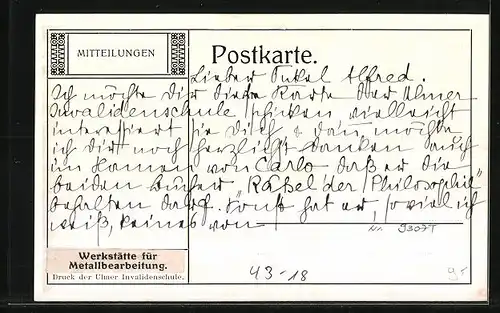 MITTEILUNGEN
Postkarte.
Lieber Onkel Alfred.
Ich möchte dir diese Karte der Ulmer
Invalidenschule schicken vielleicht
interessiert sie dich & dann möchte
ich dir noch herzlichst danken auch
im Namen von Carlo daß er die
beiden Bücher "Rätsel der Philosophie"
behalten darf. Sonst hat er, soviel ich
weiß, keines von
Nr. 9307T
Werkstätte für
Metallbearbeitung.
Druck der Ulmer Invalidenschule.
43-18